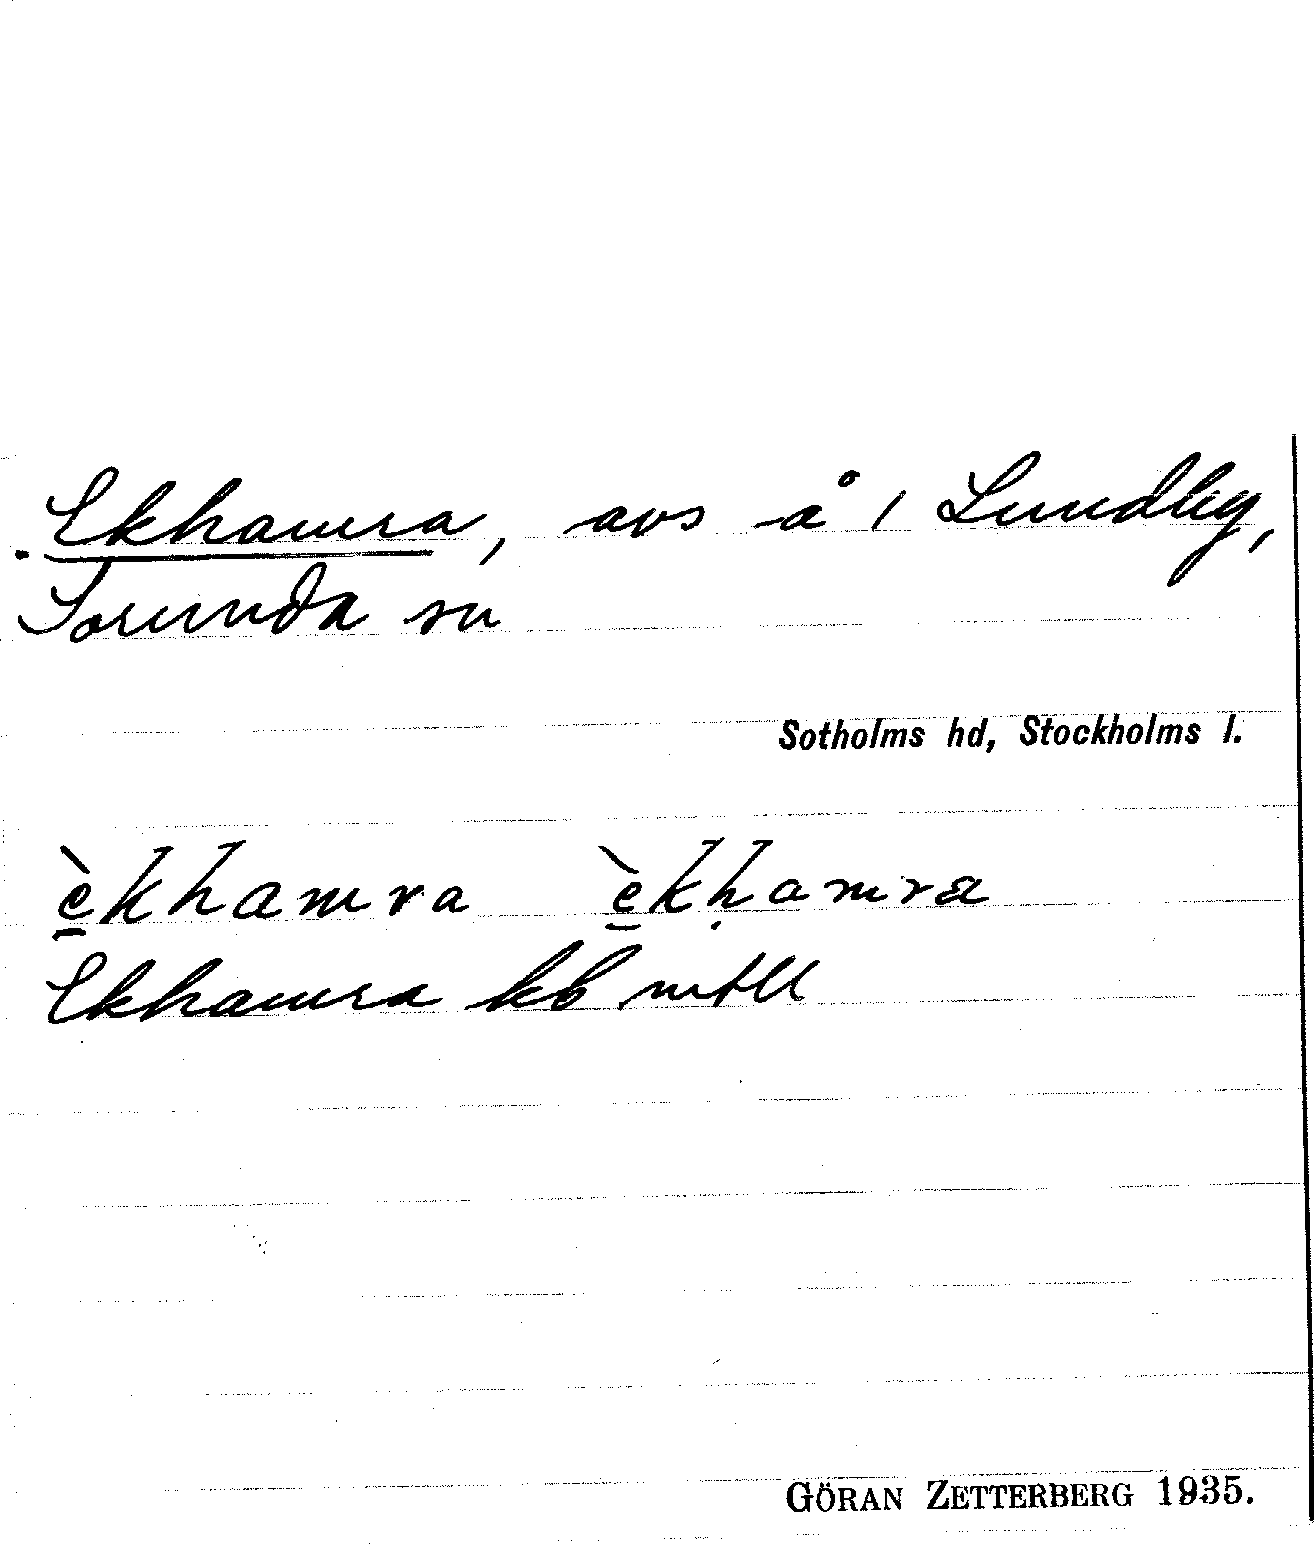 Ekhamra, avs å 1 Lundby,
Sorunda sn
Sotholms hd, Stockholms l.
è̲khamra è̲kḥamra
Ekhamra kb mtll
GÖRAN ZETTERBERG 1935.